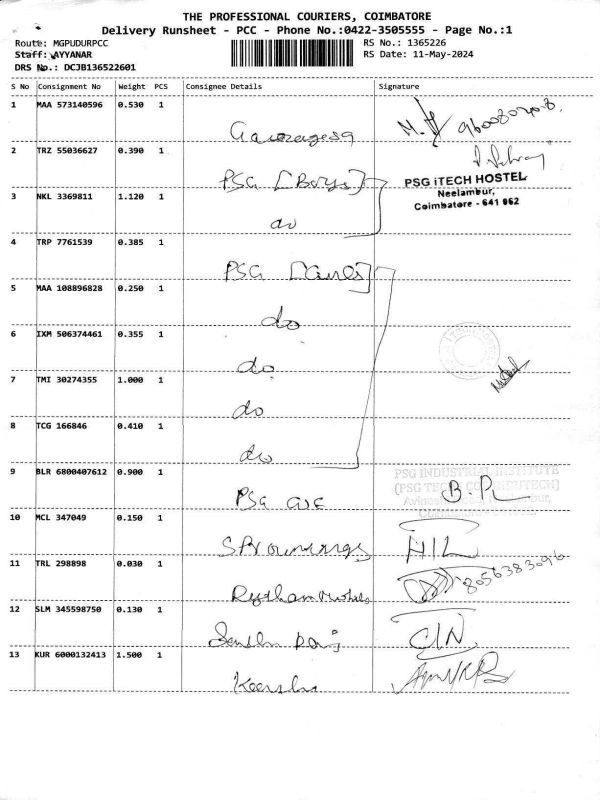 THE PROFESSIONAL COURIERS, COIMBATORE
Delivery Runsheet - PCC - Phone No.:0422-3505555 - Page No.:1
Route: MGPUDURPCC RS No.: 1365226
Staff: AYYANAR RS Date: 11-May-2024
DRS No.: DCJB136522601
S No Consignment No Weight PCS Consignee Details Signature
1 MAA 573140596 0.530 1
2 TRZ 55036627 0.390 1
PSG [Boys]
PSG iTECH HOSTEL
Neelambur,
Coimbatore - 641 062
3 NKL 3369811 1.120 1
do
4 TRP 7761539 0.385 1
PSG [Girls]
5 MAA 108896828 0.250 1
do
6 IXM 506374461 0.355 1
do
7 TMI 30274355 1.000 1
do
8 TCG 166846 0.410 1
do
9 BLR 6800407612 0.900 1
PSG INDUSTRIAL INSTITUTE
PSG
10 MCL 347049 0.150 1
11 TRL 298898 0.030 1
8056383096
12 SLM 345598750 0.130 1
13 KUR 6000132413 1.500 1